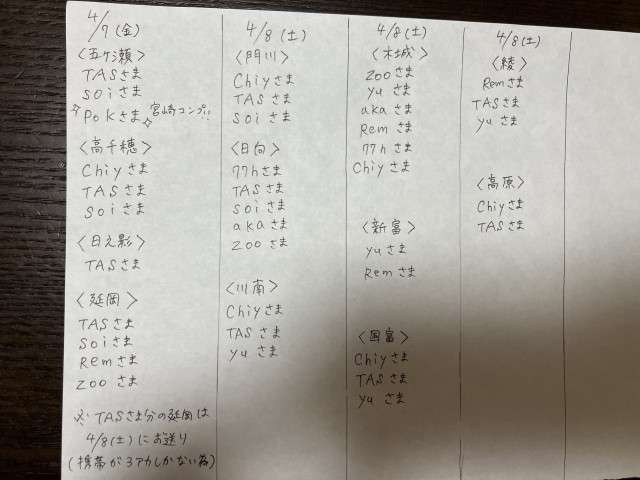 4/7(金)
〈五ケ瀬〉
TASさま
soiさま
☆Pokさま☆ 宮崎コンプ!!
〈高千穂〉
Chiyさま
TASさま
soiさま
〈日之影〉
TASさま
〈延岡〉
TASさま
soiさま
Remさま
zooさま
※TASさま分の延岡は
4/8(土)にお送り
(携帯が3アカしかない為)
4/8(土)
〈門川〉
Chiyさま
TASさま
soiさま
〈日向〉
77hさま
TASさま
soiさま
akaさま
zooさま
〈川南〉
Chiyさま
TASさま
yuさま
4/8(土)
〈木城〉
zooさま
yuさま
akaさま
Remさま
77hさま
Chiyさま
〈新富〉
yuさま
Remさま
〈国富〉
Chiyさま
TASさま
yuさま
4/8(土)
〈綾〉
Remさま
TASさま
yuさま
〈高原〉
Chiyさま
TASさま